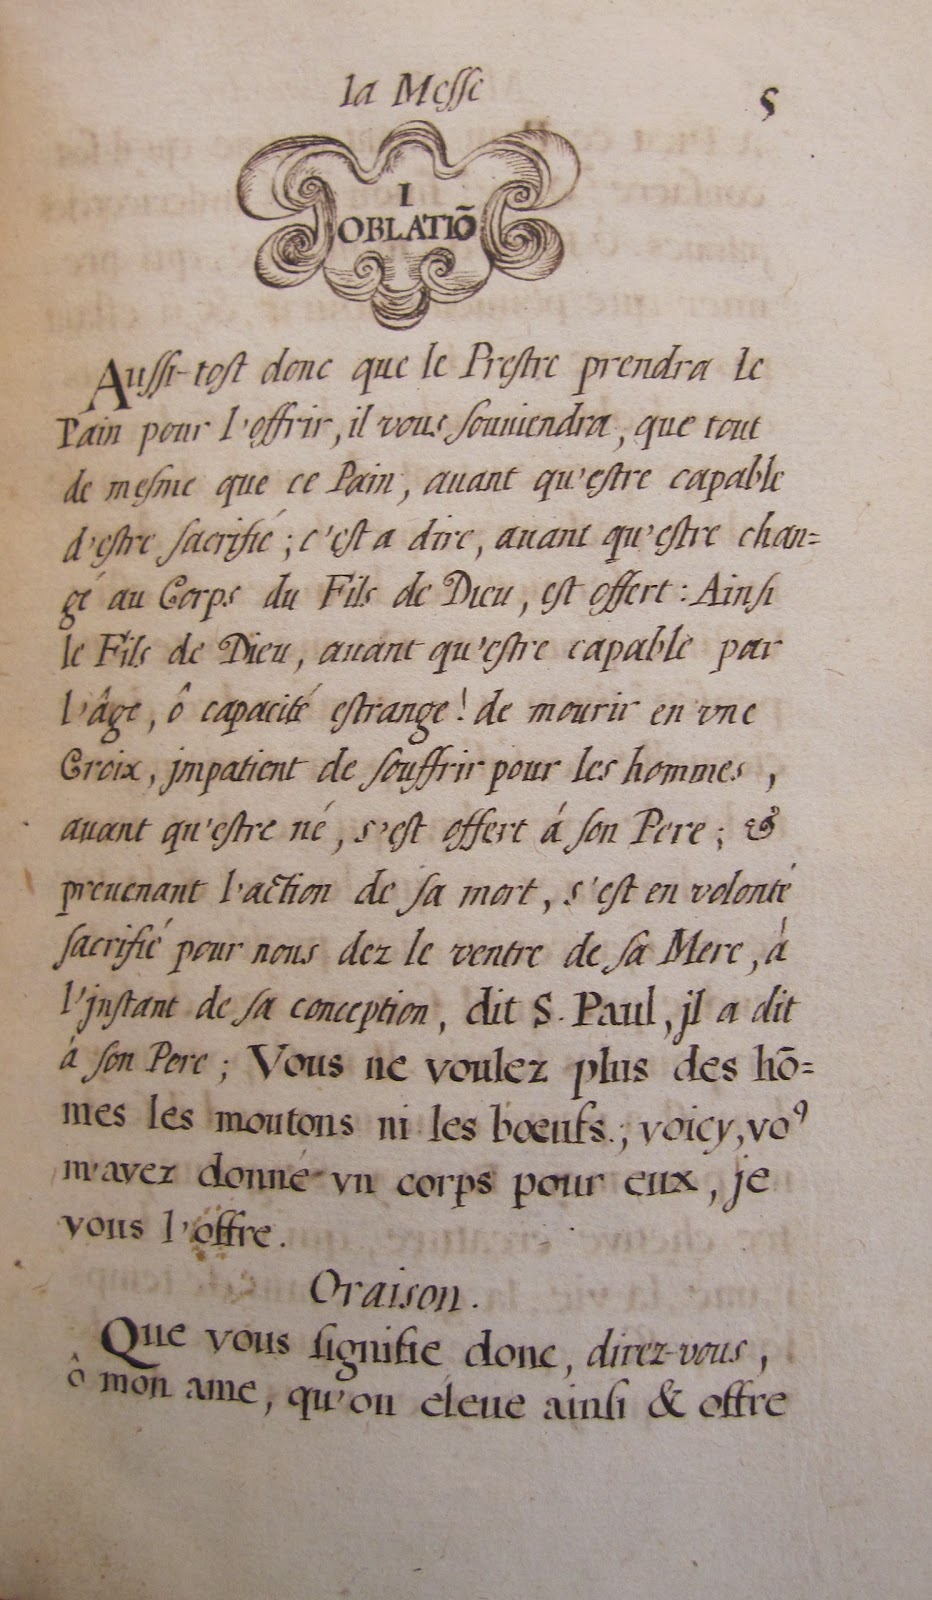 la Messe
5
I
OBLATIÕ
Aussi-tost donc que le Prestre prendra le
Pain pour l'offrir, il vous souuiendra, que tout
de mesme que ce Pain, auant qu'estre capable
d'estre sacrifié; c'est a dire, auant qu'estre chan=
gé au Corps du Fils de Dieu, est offert: Ainsi
le Fils de Dieu, auant qu'estre capable par
l'âge, ô capacité estrange! de mourir en vne
Croix, jmpatient de souffrir pour les hommes,
auant qu'estre né, s'est offert á son Pere; &
preuenant l'action de sa mort, s'est en volonté
sacrifié pour nous dez le ventre de sa Mere, á
l'jnstant de sa conception, dit S. Paul, jl a dit
á son Pere; Vous ne voulez plus des hõ=
mes les moutons ni les bœufs.; voicy, voꝰ
m'avez donné vn corps pour eux, je
vous l'offre.
Oraison.
Que vous signifie donc, direz-vous,
ô mon ame, qu'on éleue ainsi & offre